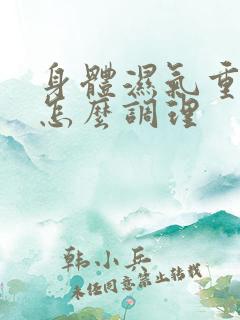 身體濕氣重
怎麼調理
韩小兵
未经同意禁止转载